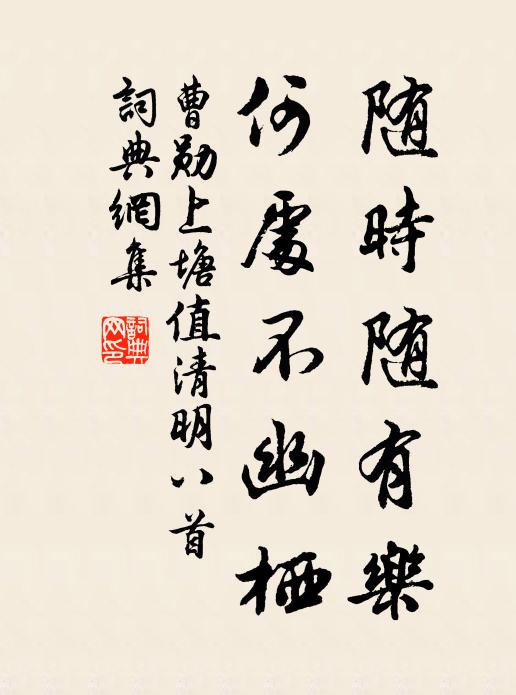 随時随有樂
何處不幽栖
曹勛上塘值清明八首
詞典網集
詞典网印